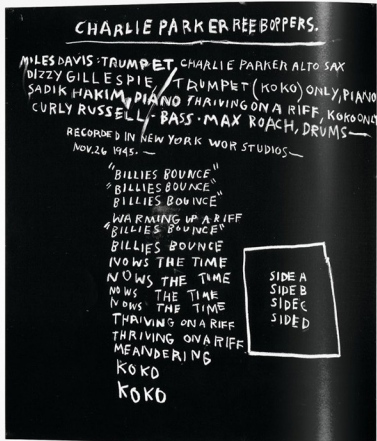 CHARLIE PARKER REEBOPPERS.
MILES DAVIS·TRUMPET, CHARLIE PARKER ALTO SAX
DIZZY GILLESPIE, TRUMPET (KOKO) ONLY, PIANO
SADIK HAKIM, PIANO THRIVING ON A RIFF, KOKO ONLY
CURLY RUSSELL·BASS·MAX ROACH, DRUMS—
RECORDED IN NEW YORK WOR STUDIOS—
NOV.26 1945.—
"BILLIES BOUNCE"
"BILLIES BOUNCE"
BILLIES BOUNCE
WARMING UP A RIFF
"BILLIES BOUNCE"
BILLIES BOUNCE
NOWS THE TIME
NOWS THE TIME
NOWS THE TIME
NOWS THE TIME
THRIVING ON A RIFF
THRIVING ON A RIFF
MEANDERING
KOKO
KOKO
SIDE A
SIDE B
SIDE C
SIDE D